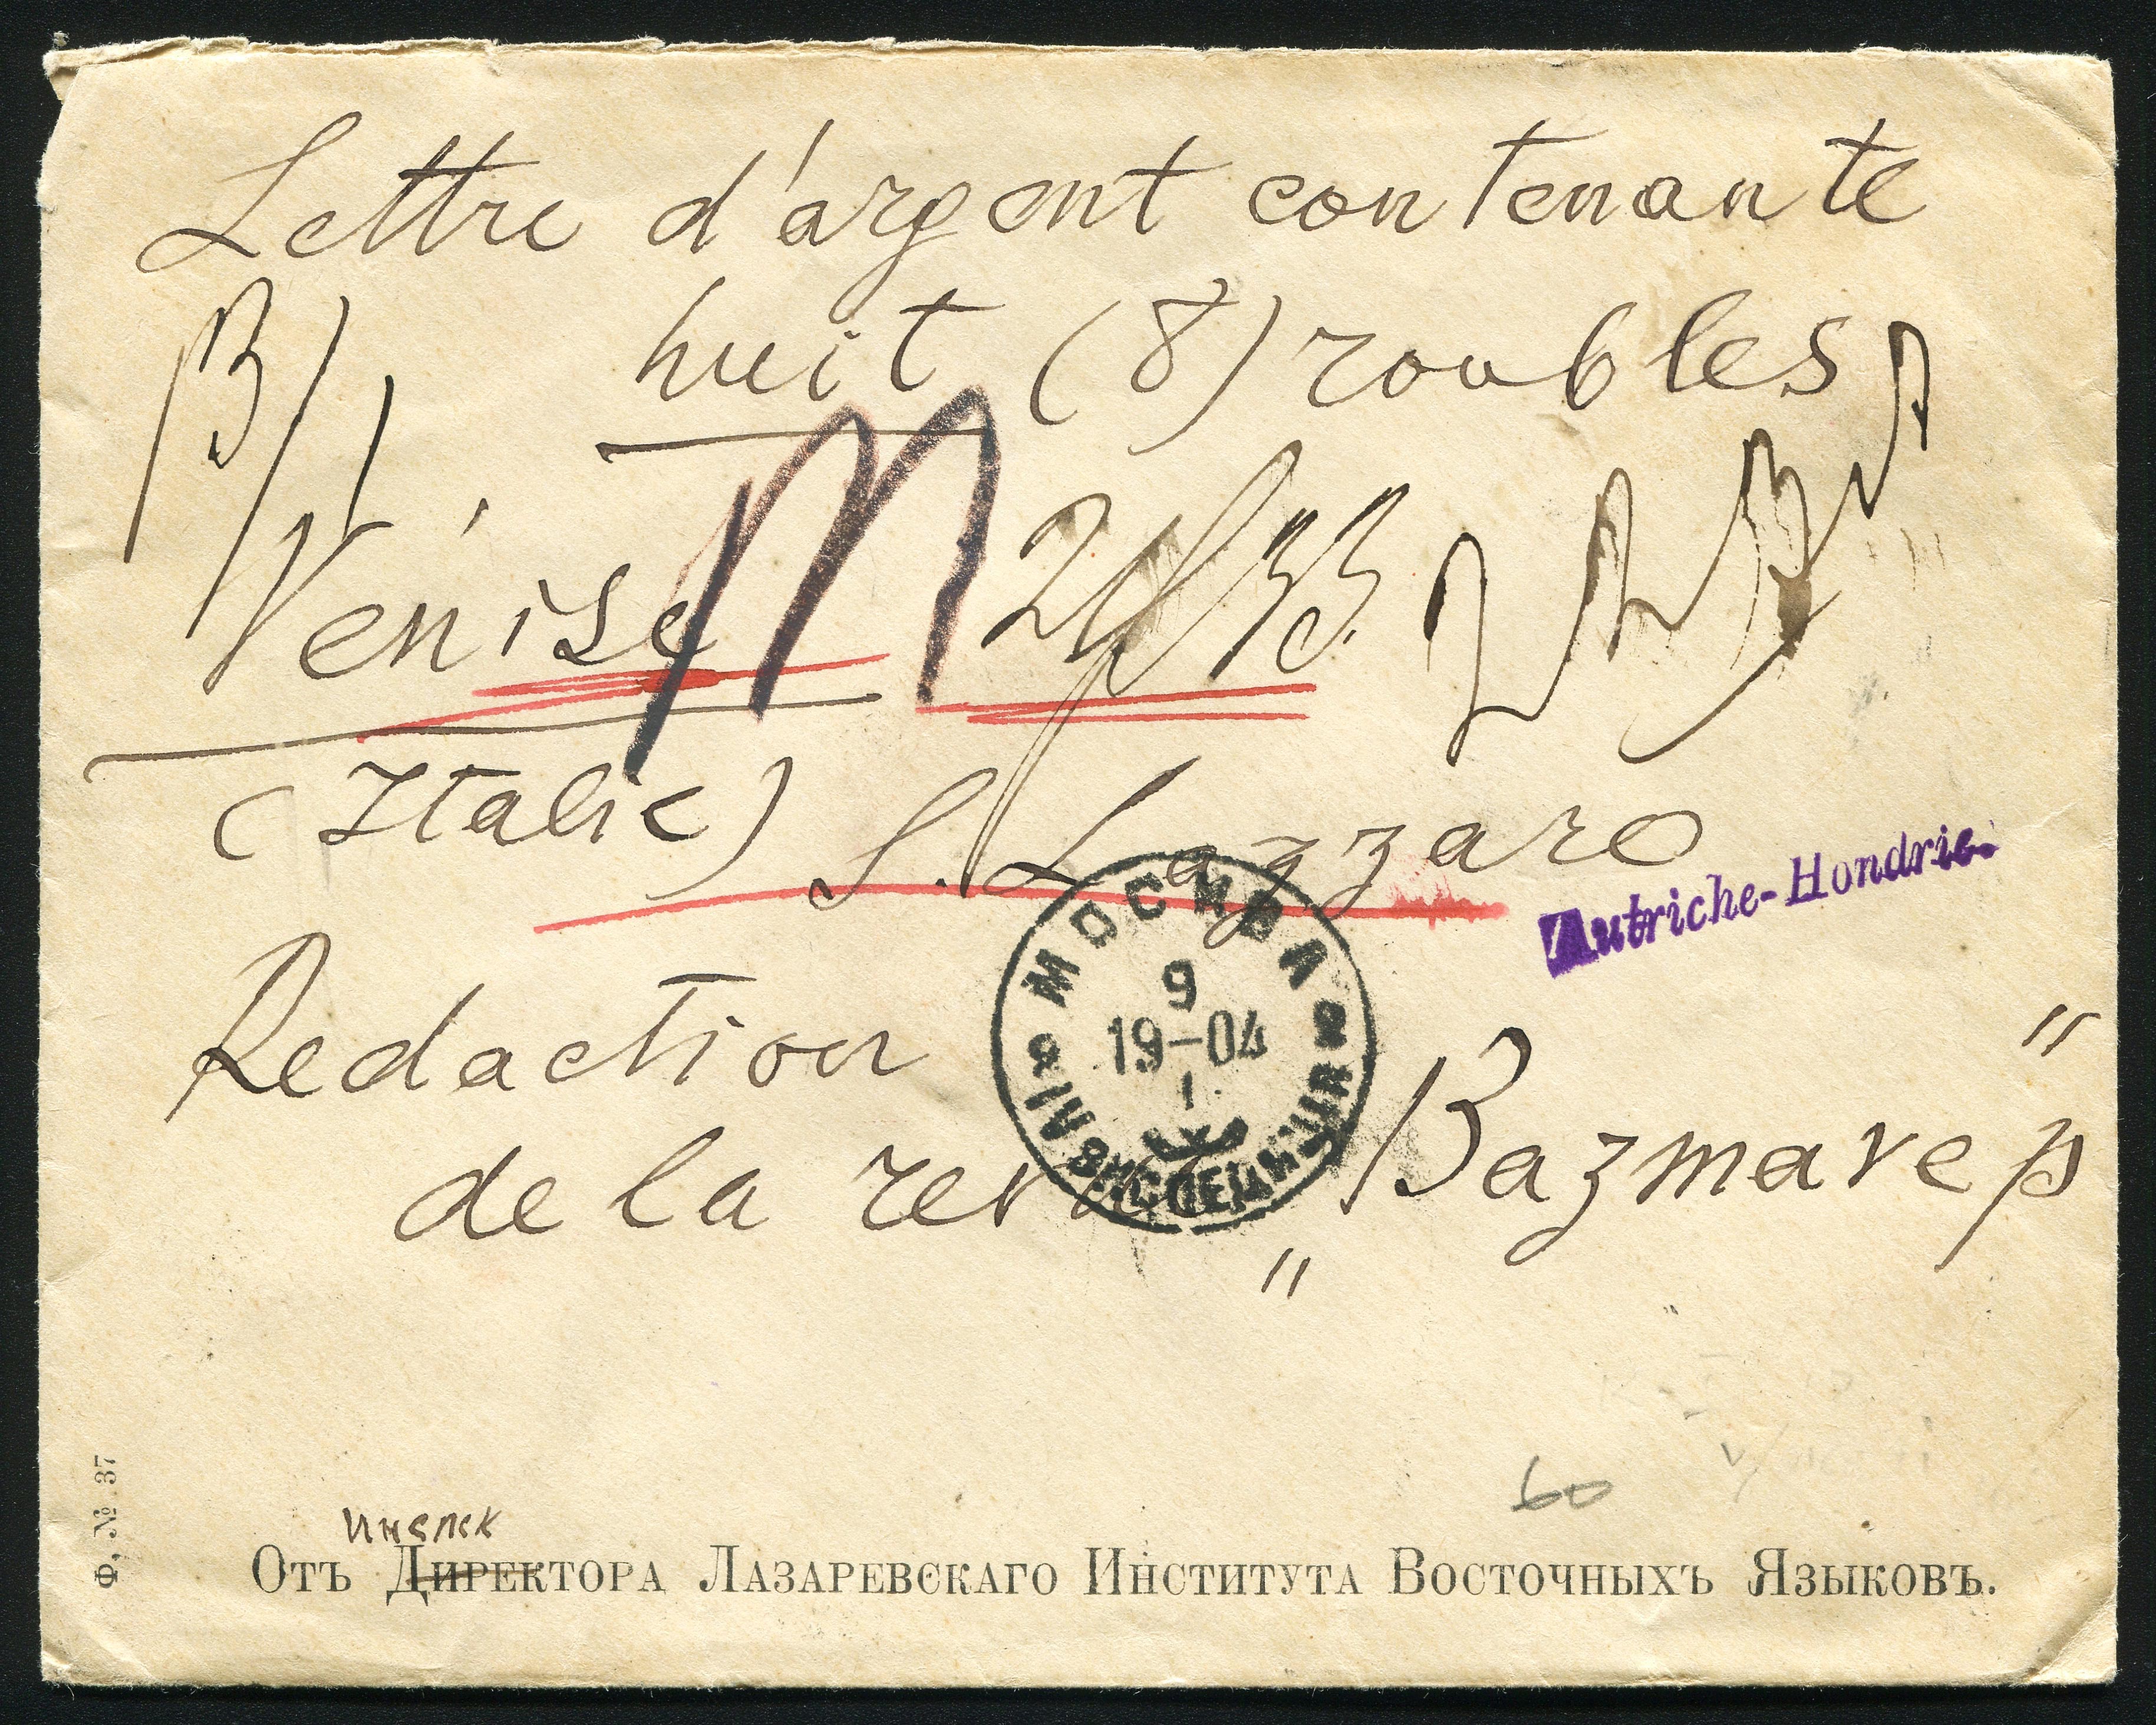 Lettre d'argent contenante
huit (8) roubles
Venise
(Italie) S. Lazzaro
Autriche-Hondrie.
МОСКВА
9
19-04
I
ЭКСПЕДИЦІЯ
Redaction
de la revue "Bazmavep"
60
Ф. № 37
Инспек
Отъ Директора Лазаревскаго Института Восточныхъ Языковъ.